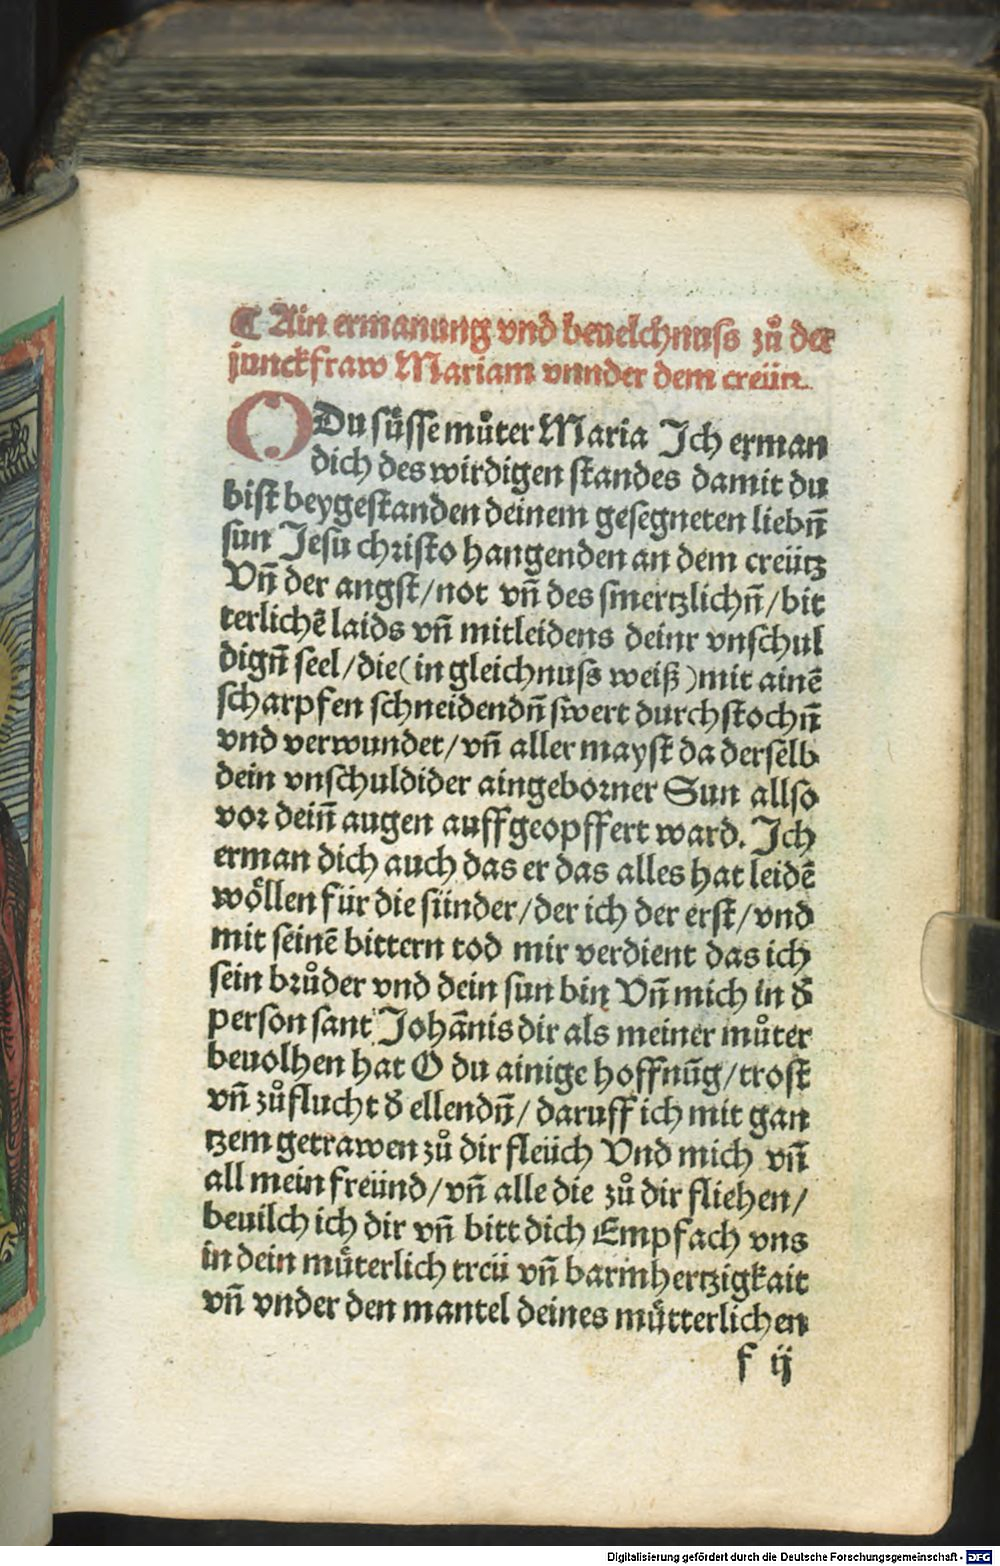 ¶ Ain ermanung vnd beuelchnuss zů der
junckfraw Mariam vnnder dem creütz.
O Du sůsse můter Maria Ich erman
dich des wirdigen standes damit du
bist beygestanden deinem gesegneten liebñ
sun Jesu christo hangenden an dem creütz
Vñ der angst/not vñ des smertzlichñ/bit
terlichē laids vñ mitleidens deinr vnschul
digñ seel/die(in gleichnuss weiß)mit ainē
scharpfen schneidendñ swert durchstochñ
vnd verwundet/vñ aller mayst da derselb
dein vnschuldider aingeborner Sun allso
vor deiñ augen auffgeopffert ward. Ich
erman dich auch das er das alles hat leidē
wöllen für die sünder/der ich der erst/vnd
mit seinē bittern tod mir verdient das ich
sein brůder vnd dein sun bin Vñ mich in d̕
person sant Johānis dir als meiner můter
beuolhen hat O du ainige hoffnūg/trost
vñ zůflucht d̕ ellendñ/daruff ich mit gan
tzem getrawen zů dir fleüch Vnd mich vñ
all mein freünd/vñ alle die zů dir fliehen/
beuilch ich dir vñ bitt dich Empfach vns
in dein můterlich treü vñ barmhertzigkait
vñ vnder den mantel deines můtterlichen
f ij
Digitalisierung gefördert durch die Deutsche Forschungsgemeinschaft - DFG